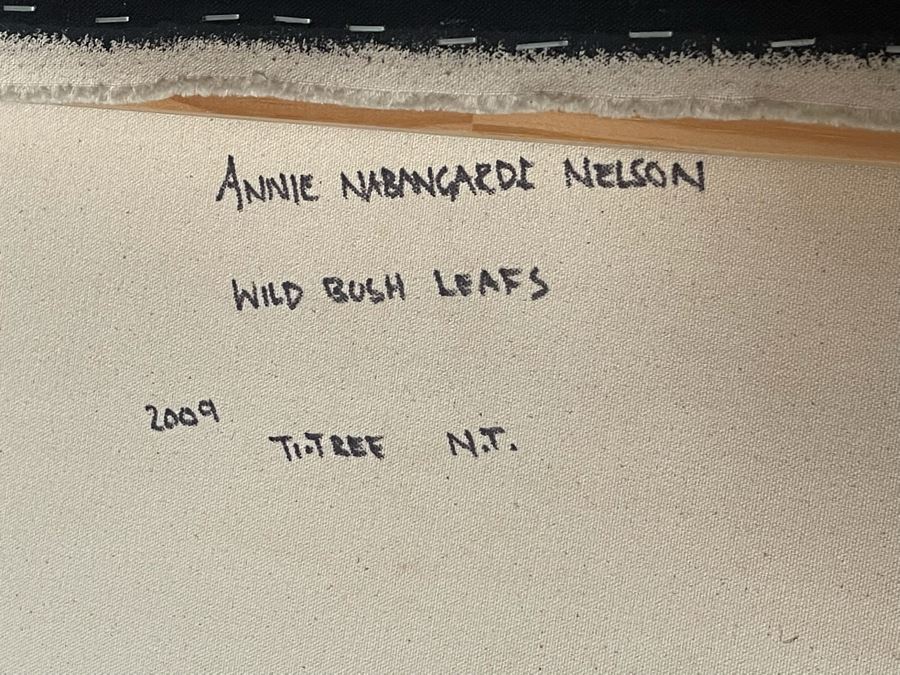 ANNIE NABANGARDI NELSON
WILD BUSH LEAFS
2009
TI-TREE N.T.